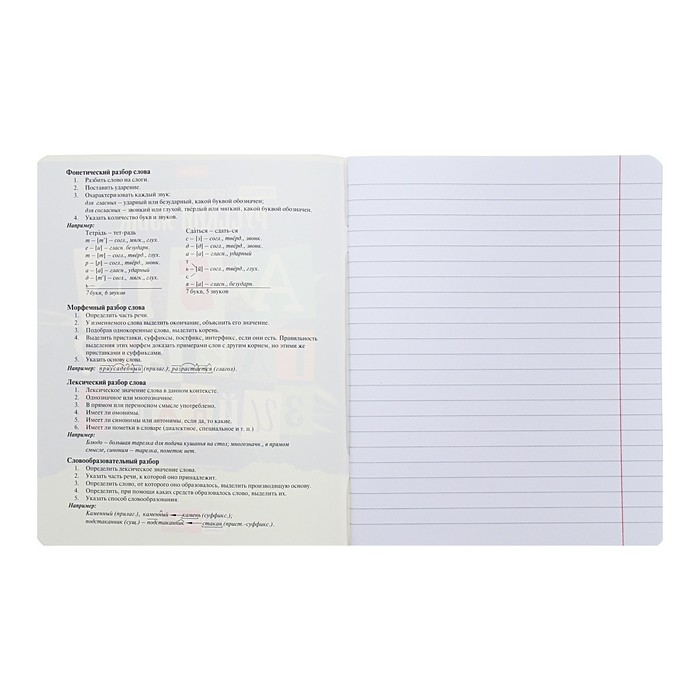 Фонетический разбор слова
1. Разбить слово на слоги.
2. Поставить ударение.
3. Охарактеризовать каждый звук:
для гласных – ударный или безударный, какой буквой обозначен;
для согласных – звонкий или глухой, твёрдый или мягкий, какой буквой обозначен.
4. Указать количество букв и звуков.
Например:
Тетрадь – тет-радь
т – [т'] – согл., мягк., глух.
е – [и] – гласн. безударн.
т – [т] – согл., твёрд., глух.
р – [р] – согл., твёрд., звонк.
а – [а] – гласн., ударный
д – [т'] – согл., мягк., глух
ь
7 букв, 6 звуков
Сдаться – сдать-ся
с – [з] – согл., твёрд., звонк.
д – [д] – согл., твёрд., звонк.
а – [а] – гласн., ударный
т
ь – [ц] – согл., твёрд., глух.
с
я – [а] – гласн., безударн.
7 букв, 5 звуков
Морфемный разбор слова
1. Определить часть речи.
2. У изменяемого слова выделить окончание, объяснить его значение.
3. Подобрав однокоренные слова, выделить корень.
4. Выделить приставки, суффиксы, постфикс, интерфикс, если они есть. Правильность
выделения этих морфем доказать примерами слов с другим корнем, но этими же
приставками и суффиксами.
5. Указать основу слова.
Например: приусадебный (прилаг.); разрастается (глагол).
Лексический разбор слова
1. Лексическое значение слова в данном контексте.
2. Однозначное или многозначное.
3. В прямом или переносном смысле употреблено.
4. Имеет ли омонимы.
5. Имеет ли синонимы или антонимы, если да, то какие.
6. Имеет ли пометки в словаре (диалектное, специальное и т. п.)
Например:
Блюдо – большая тарелка для подачи кушанья на стол; многозначн., в прямом
смысле, синоним – тарелка, пометок нет.
Словообразовательный разбор
1. Определить лексическое значение слова.
2. Указать часть речи, к которой оно принадлежит.
3. Определить слово, от которого оно образовалось, выделить производящую основу.
4. Определить, при помощи каких средств образовалось слово, выделить их.
5. Указать способ словообразования.
Например:
Каменный (прилаг.), каменный → камень (суффикс.);
подстаканник (сущ.) – подстаканник → стакан (прист.-суффикс.).